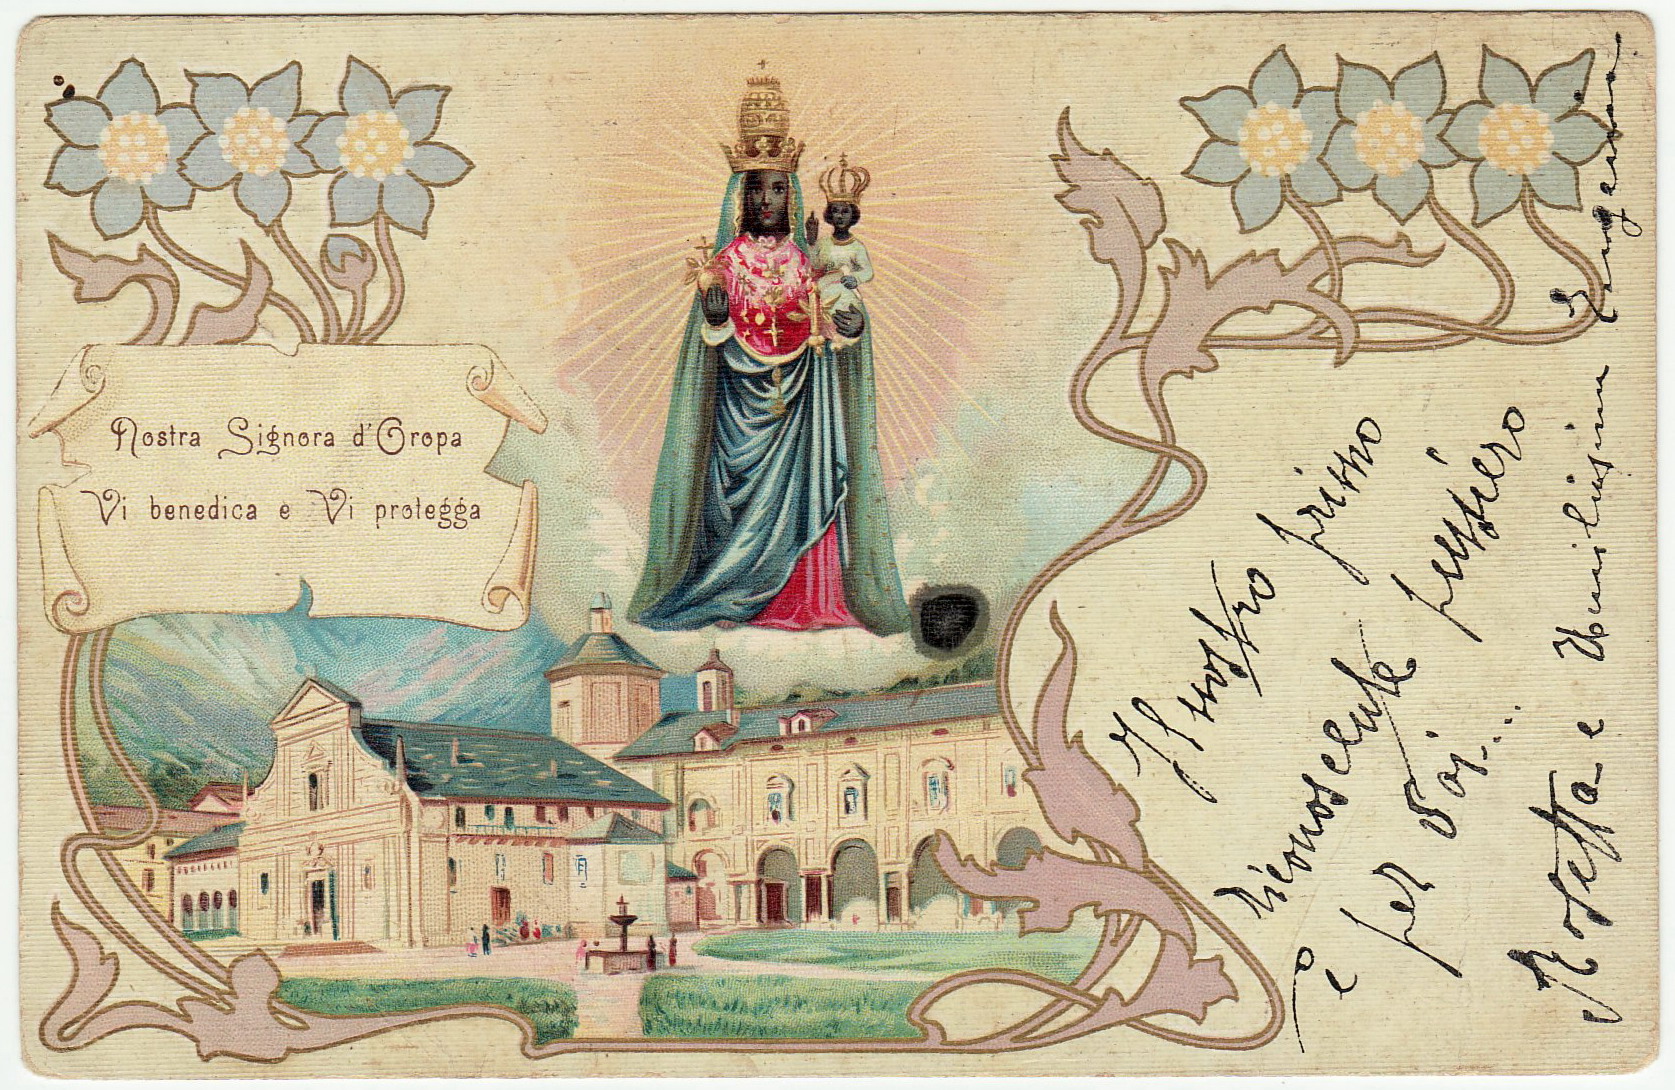 Nostra Signora d'Oropa
Vi benedica e Vi protegga
Il nostro primo
riconoscente pensiero
è per Voi...
Rosetta e